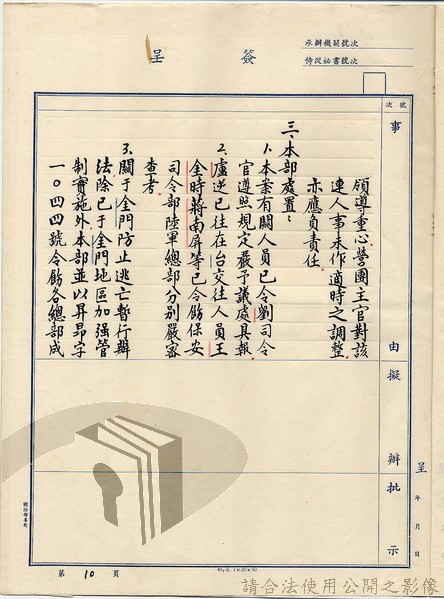 簽呈
承辦機關號次
侍從祕書號次
號次
事由擬辦批示
呈 年 月 日
領導重心營團主官對該
連人事未作適時之調整
亦應負責任
三、本部處置：
1.本案有關人員已令劉司令
官遵照規定嚴予議處具報
2.盧逆已往在台交往人員王
全時蔣南屏等已令飭保安
司令部陸軍總部分別嚴審
查考
3.關于金門防止逃亡暫行辦
法除已于金門地區加强管
制實施外本部並以昇昂字
一〇四四號令飭各總部成
第10頁
請合法使用公開之影像